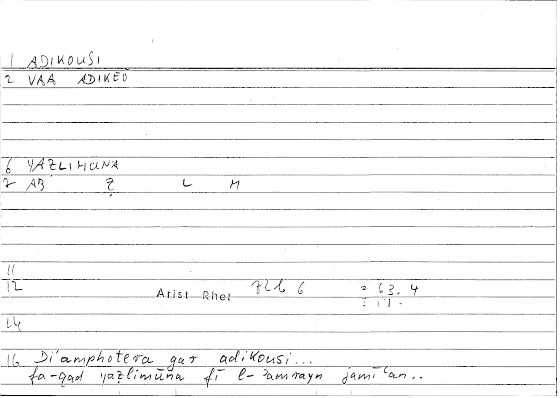 1 ADIKOUSI
2 VAA ADIKEŌ
6 YAẒLIMŪNA
7 AB Ẓ L M
11
12 Arist Rhet 71b 6 = 63.4
14
16 Di'amphotera gar adikousi...
fa-qad yaẓlimūna fī l-ʾamrayn jamīʿan..